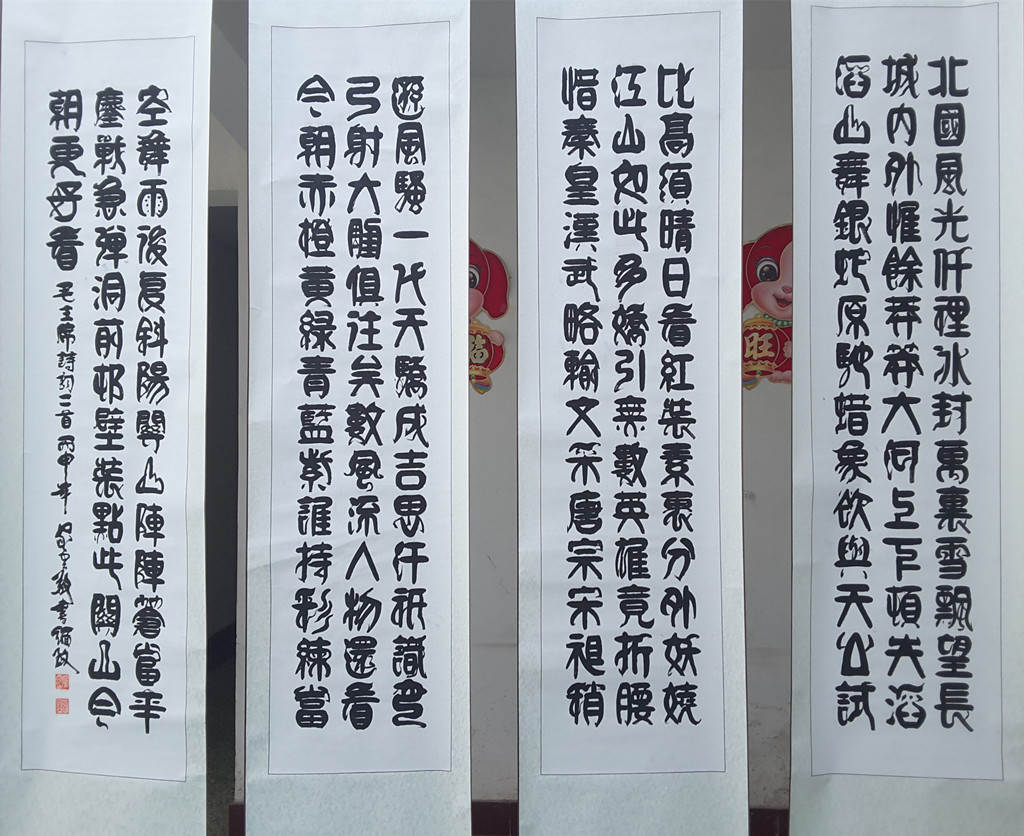 北國風光仟裡冰封萬裏雪飄望長
城内外惟餘莽莽大河上下頓失滔
滔山舞銀蛇原馳蜡象欲與天公試
比高須晴日看紅裝素裹分外妖嬈
江山如此多嬌引無數英雄竟折腰
惜秦皇漢武略輸文采唐宗宋祖稍
遜風騷一代天驕成吉思汗祇識彎
弓射大雕俱往矣數風流人物還看
今朝赤橙黃綠青藍紫誰持彩練當
空舞雨後复斜陽關山陣陣蒼當年
鏖戰急彈洞前邨壁裝點此關山今
朝更好看 毛主席詩詞二首 丙申年 書
福
旺